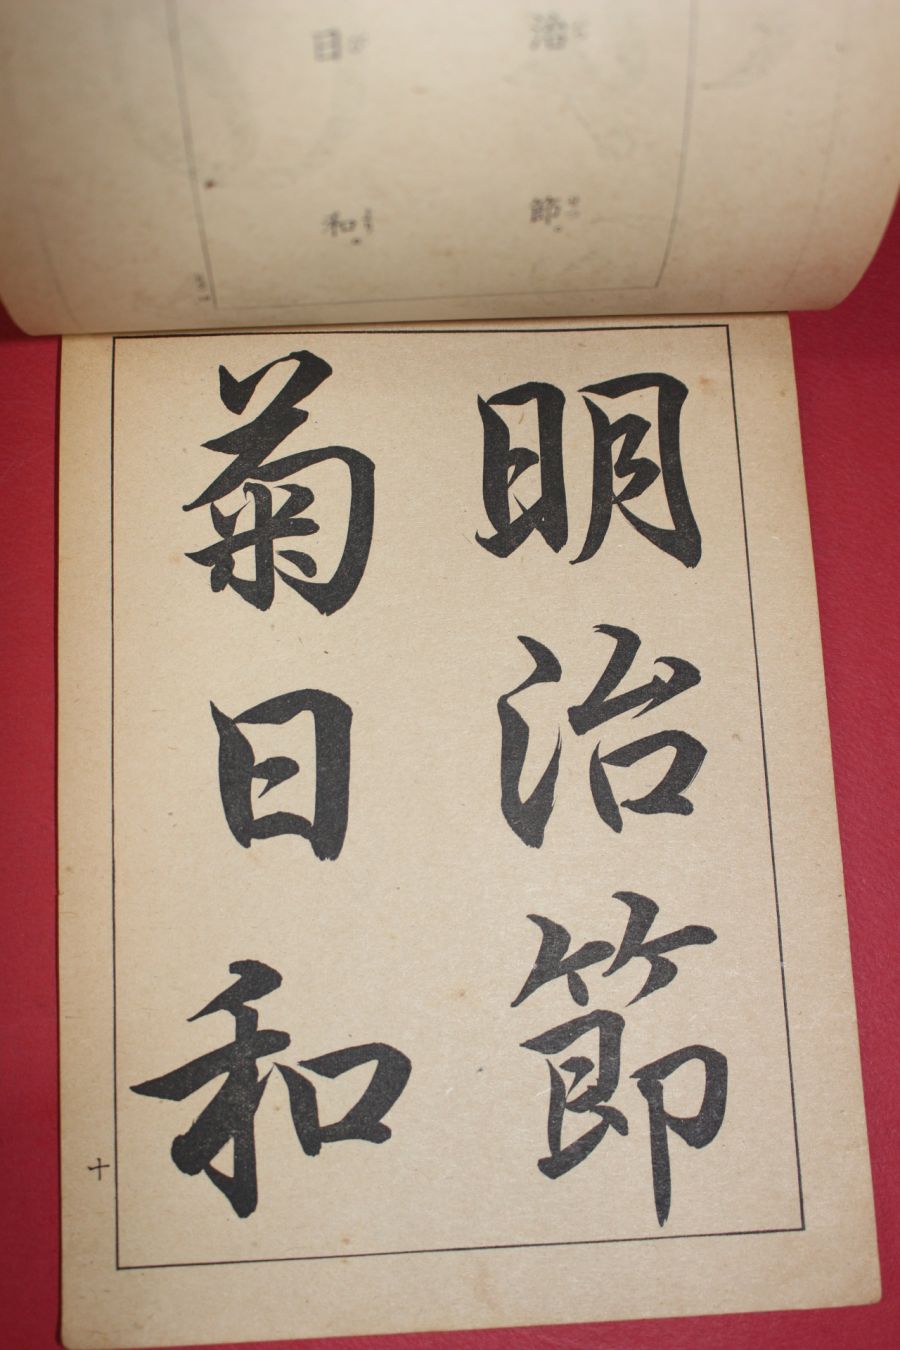 明治節
菊日和
十
治節。
日和。